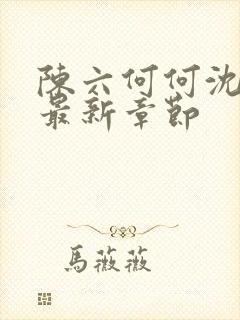 陳六何何沈
最新章節
馬薇薇